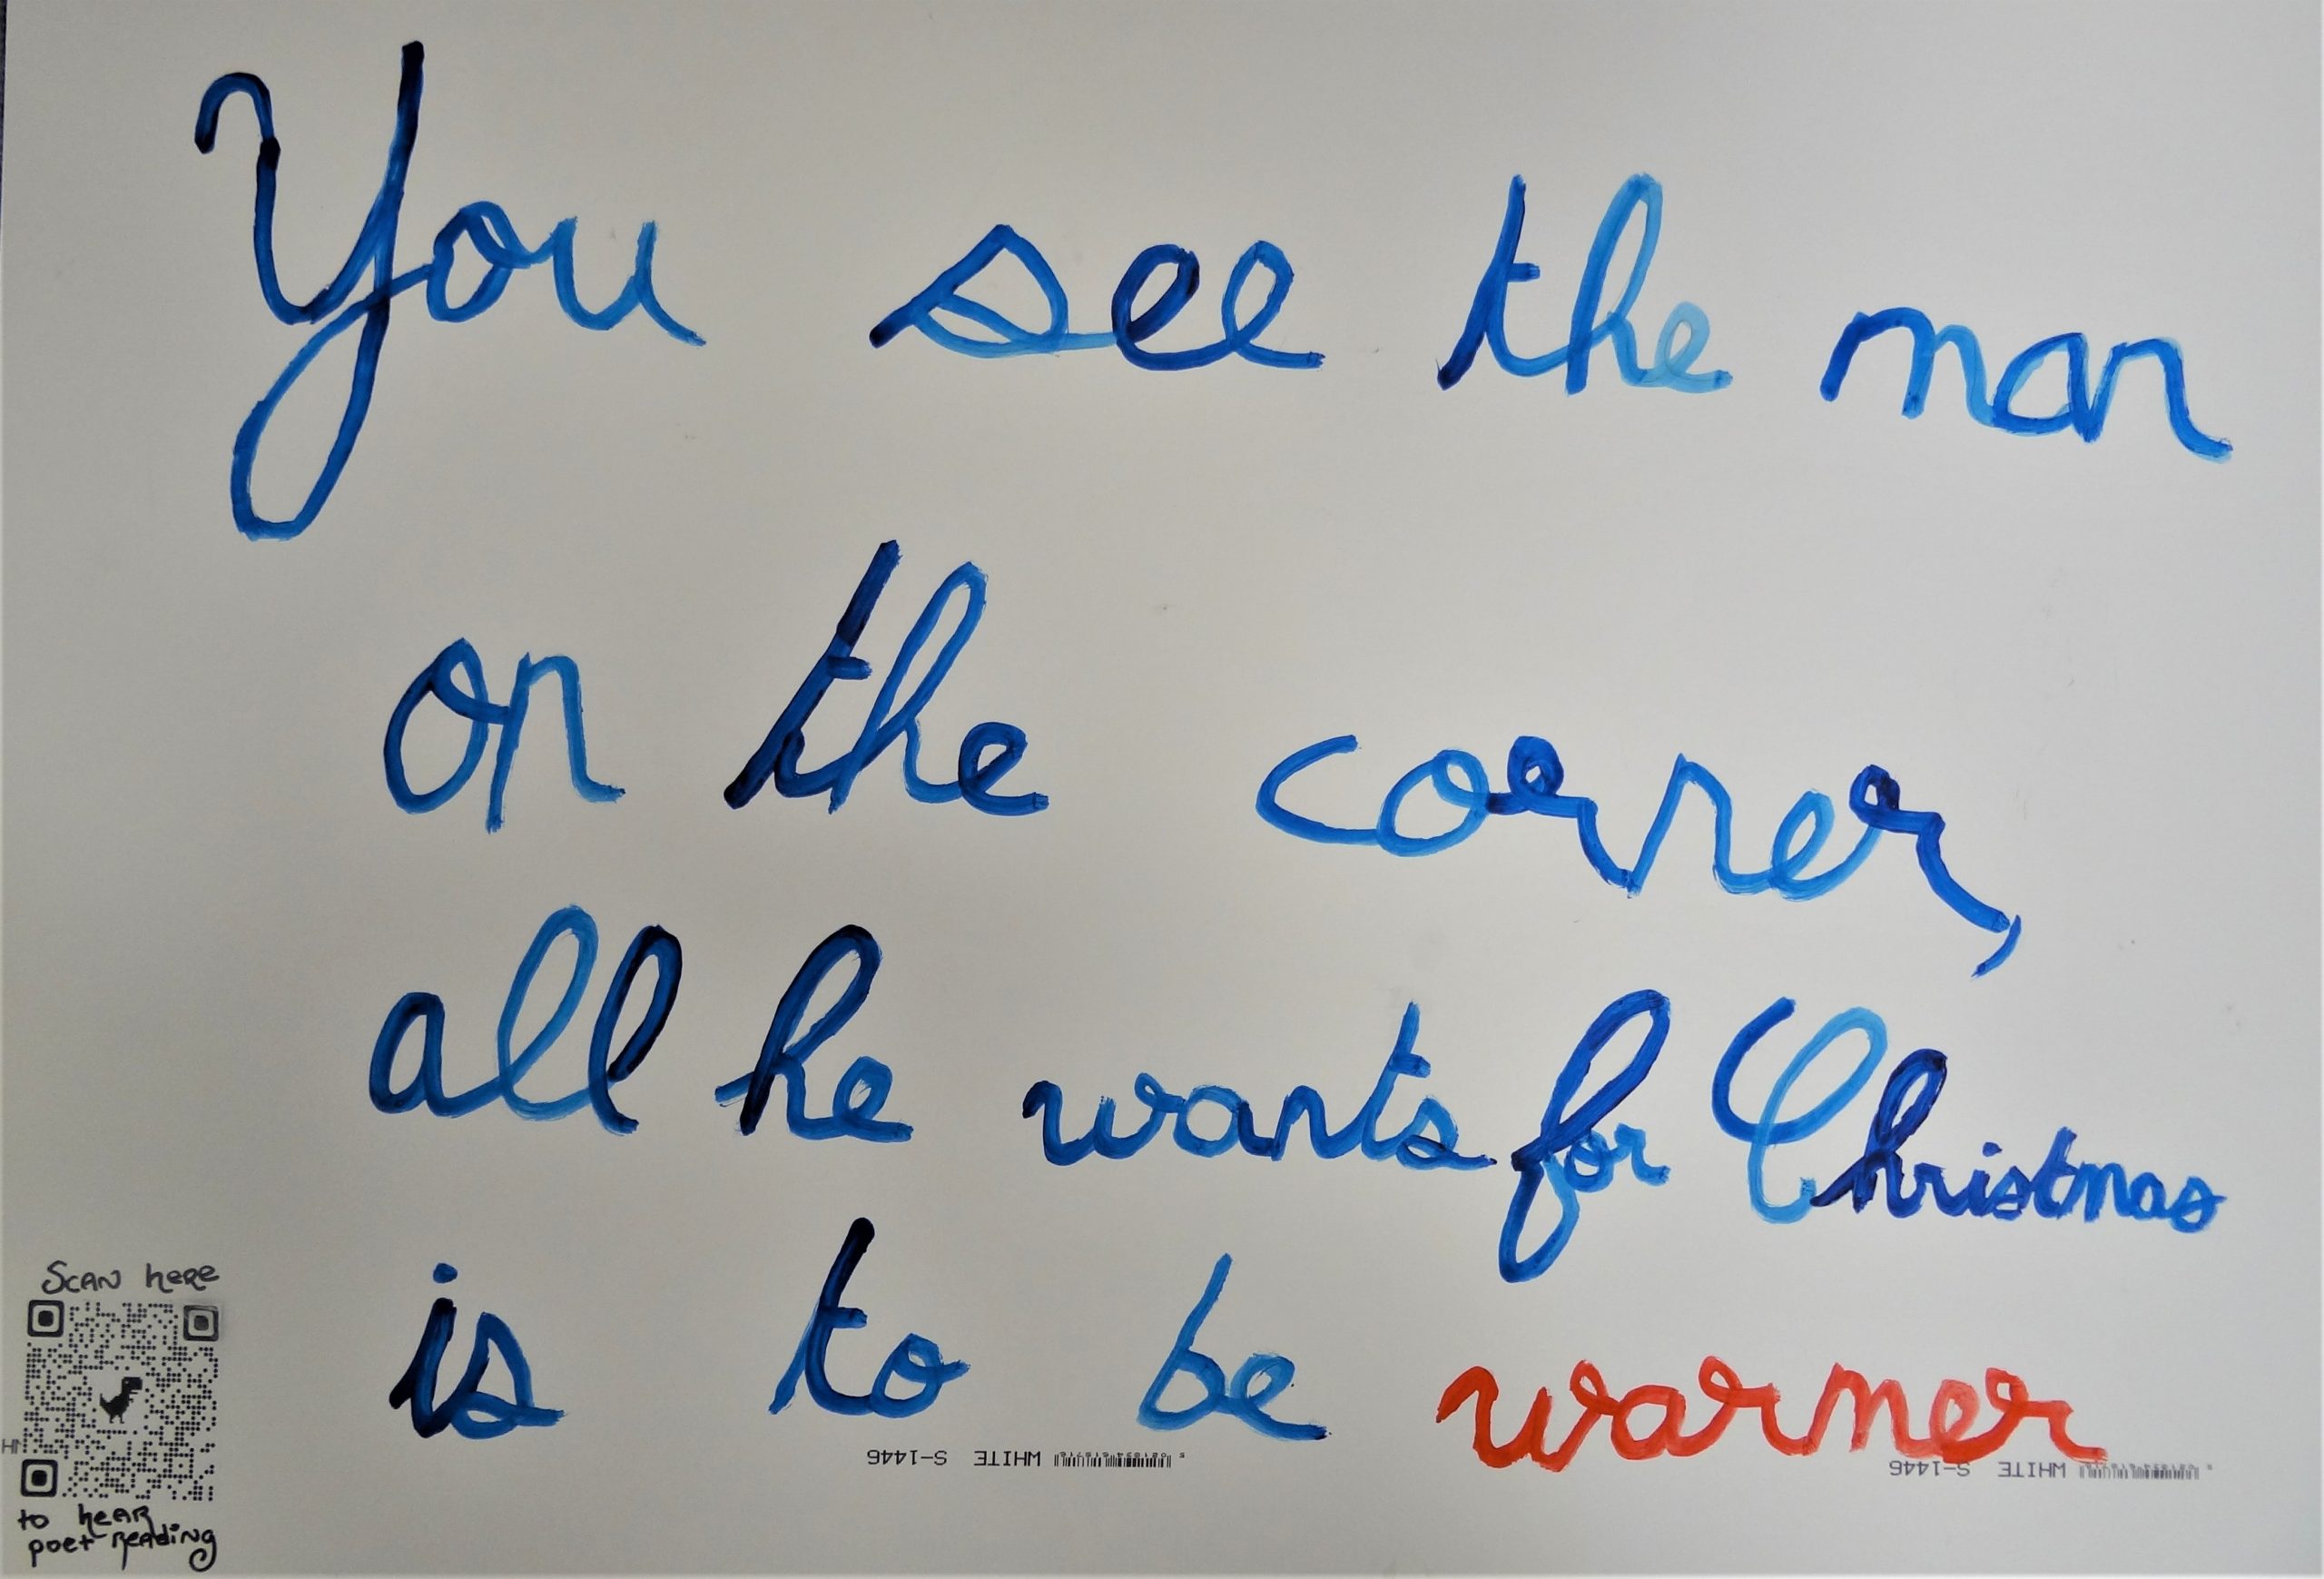 You see the man
on the corner,
all he wants for Christmas
is to be warmer
Scan here
to hear
poet reading
S-1446 WHITE
S-1446 WHITE